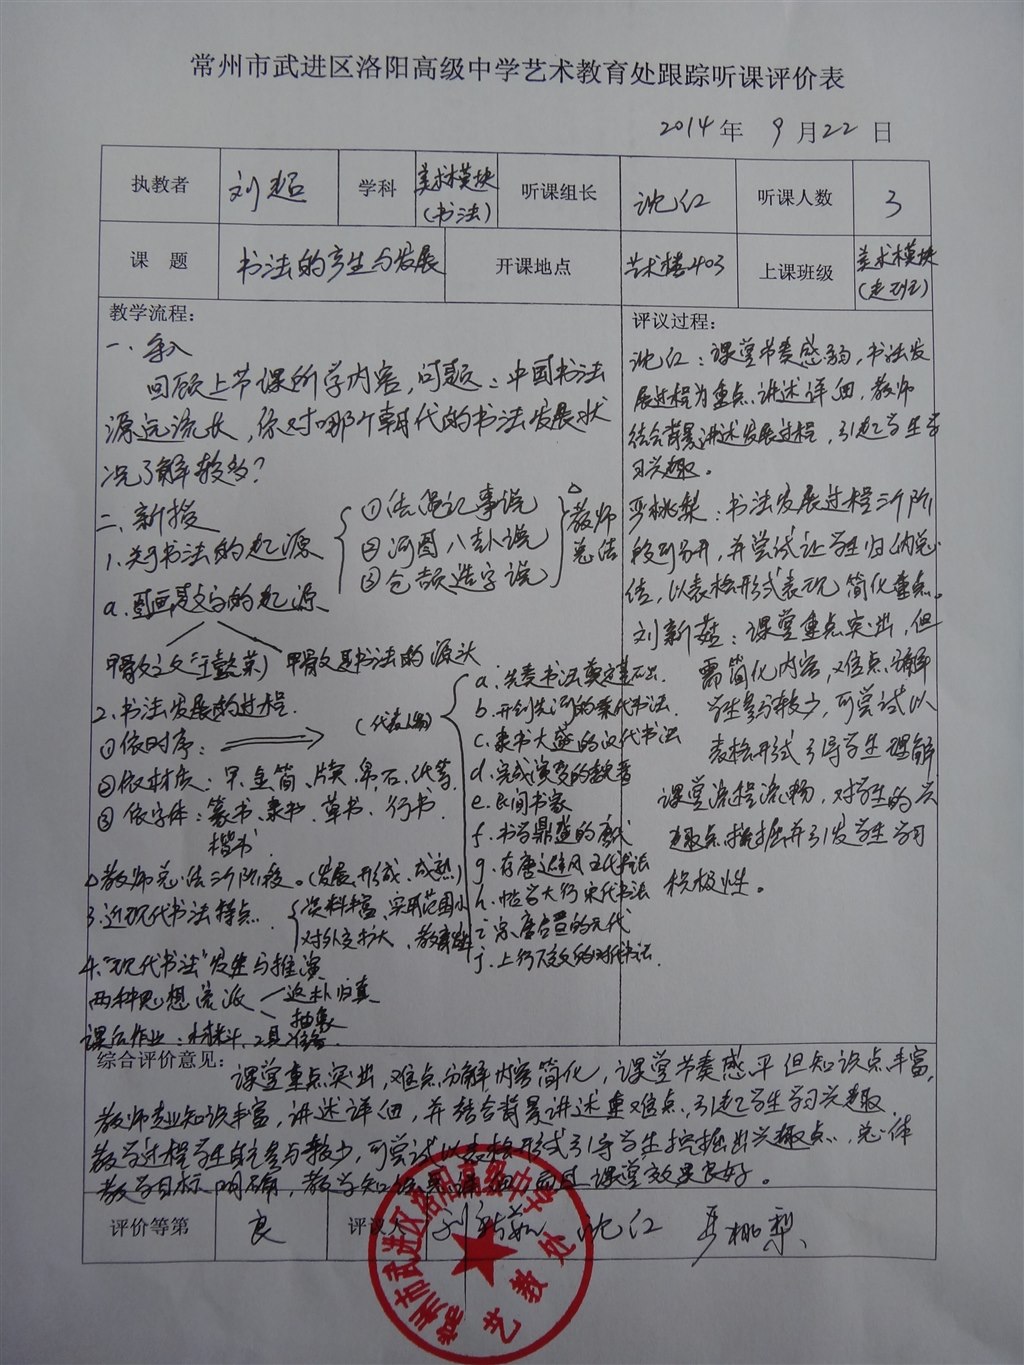 常州市武进区洛阳高级中学艺术教育处跟踪听课评价表
2014年 9月22日
执教者 刘超 学科 美术模块(书法) 听课组长 沈红 听课人数 3
课 题 书法的产生与发展 开课地点 艺术楼403 上课班级 美术模块(走班)
教学流程：
一、导入
回顾上节课所学内容，问题：中国书法
源远流长，你对哪个朝代的书法发展状
况了解较多？
二、新授
1.关于书法的起源
①结绳记事说
②河图八卦说
③仓颉造字说
教师总结
a.图画是文字的起源
甲骨文之父(王懿荣) 甲骨文是书法的源头
2.书法发展的过程.
①依时序：
(代表人物)
a.先秦书法奠定基石出
b.开创先河的秦代书法.
c.隶书大盛的汉代书法
d.完成演变的魏晋
e.民间书家
f.书学鼎盛的唐代
g.存唐遗风五代书法
h.帖学大行宋代书法
i.宗唐合晋的元代
j.上行下效的明代书法.
②依材质：甲、金、简、牍、帛、石、纸等
③依字体：篆书、隶书、草书、行书.
楷书.
△教师总结三个阶段。(发展、形成、成熟)
3.近现代书法特点.
资料丰富、实用范围小
对外交扩大、教育
4.“现代书法”发生与推演
两种思想流派 返朴归真
抽象
课后作业：
评议过程：
沈红：课堂节奏感弱，书法发
展过程为重点，讲述详细，教师
结合背景讲述发展过程，引起学生学
习兴趣。
严桃梨：书法发展过程三个阶
段列开，并尝试让学生归纳总
结，以表格形式表现，简化重点。
刘新茹：课堂重点突出，但
需简化内容，难点分解
学生参与较少，可尝试以
表格形式引导学生理解
课堂流程流畅，对学生的兴
趣点挖掘并引发学生学习
积极性。
综合评价意见：
课堂重点突出，难点分解内容简化，课堂节奏感平但知识点丰富，
教师专业知识丰富，讲述详细，并结合背景讲述重难点，引起学生学习兴趣
教学过程学生参与较少，可尝试以表格形式引导学生挖掘出兴趣点，总体
教学目标明确，教学知识，而且课堂效果良好。
评价等第 良 评议人 刘新茹 沈红 严桃梨
常州市武进区洛阳高级中学
艺教处